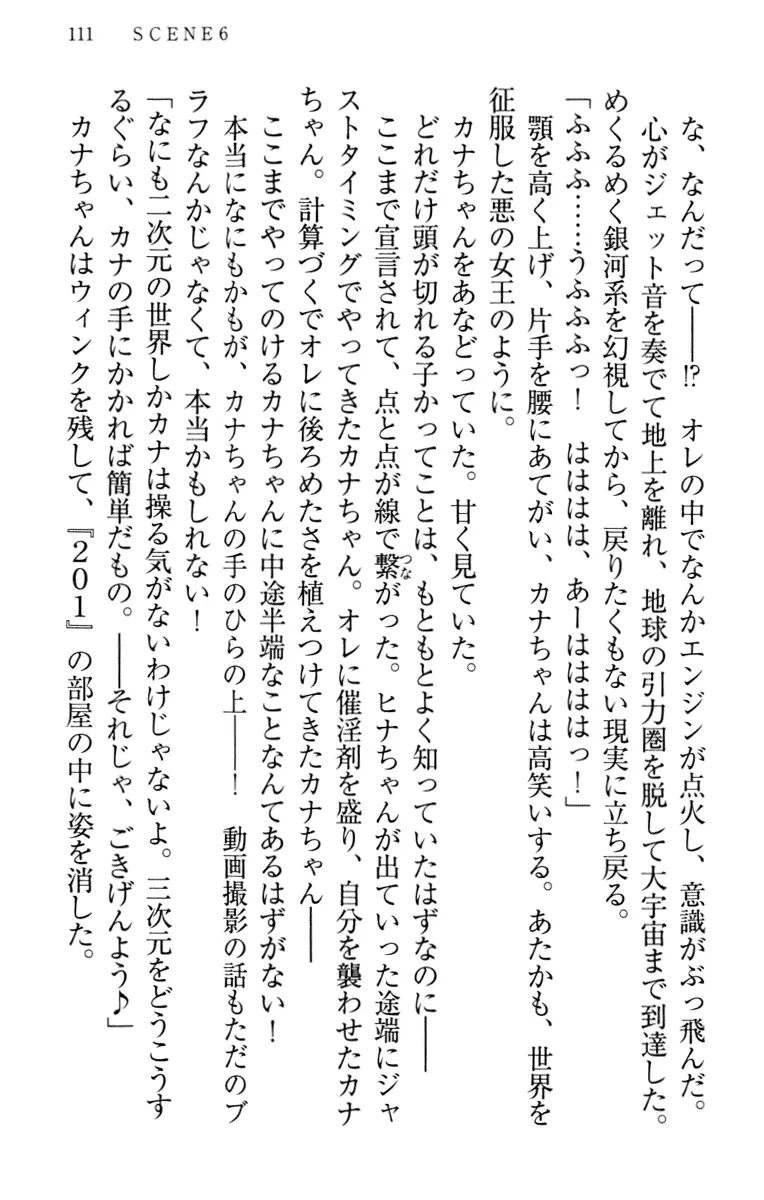 111　SCENE6
　な、なんだって――!?　オレの中でなんかエンジンが点火し、意識がぶっ飛んだ。
　心がジェット音を奏でて地上を離れ、地球の引力圏を脱して大宇宙まで到達した。
めくるめく銀河系を幻視してから、戻りたくもない現実に立ち戻る。
「ふふふ……うふふふっ！　はははは、あーははははっ！」
　顎を高く上げ、片手を腰にあてがい、カナちゃんは高笑いする。あたかも、世界を
征服した悪の女王のように。
　カナちゃんをあなどっていた。甘く見ていた。
　どれだけ頭が切れる子かってことは、もともとよく知っていたはずなのに――
　ここまで宣言されて、点と点が線で繋つながった。ヒナちゃんが出ていった途端にジャ
ストタイミングでやってきたカナちゃん。オレに催淫剤を盛り、自分を襲わせたカナ
ちゃん。計算づくでオレに後ろめたさを植えつけてきたカナちゃん――
　ここまでやってのけるカナちゃんに中途半端なことなんてあるはずがない！
　本当になにもかもが、カナちゃんの手のひらの上――！　動画撮影の話もただのブ
ラフなんかじゃなくて、本当かもしれない！
「なにも二次元の世界しかカナは操る気がないわけじゃないよ。三次元をどうこうす
るぐらい、カナの手にかかれば簡単だもの。――それじゃ、ごきげんよう♪」
　カナちゃんはウィンクを残して、『２０１』の部屋の中に姿を消した。